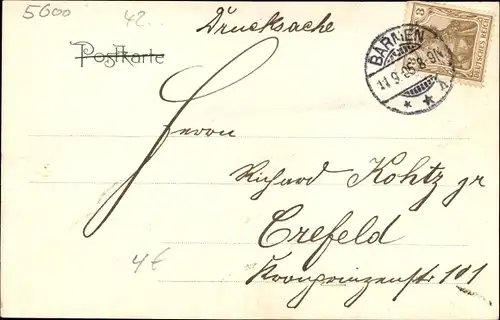 5600
42..
Drucksache
Postkarte
3
DEUTSCHES REICH
BARMEN
11.9.05.8-9N.
* * h
Herrn
Richard Kohtz jr
Crefeld
Kronprinzenstr 101
4€